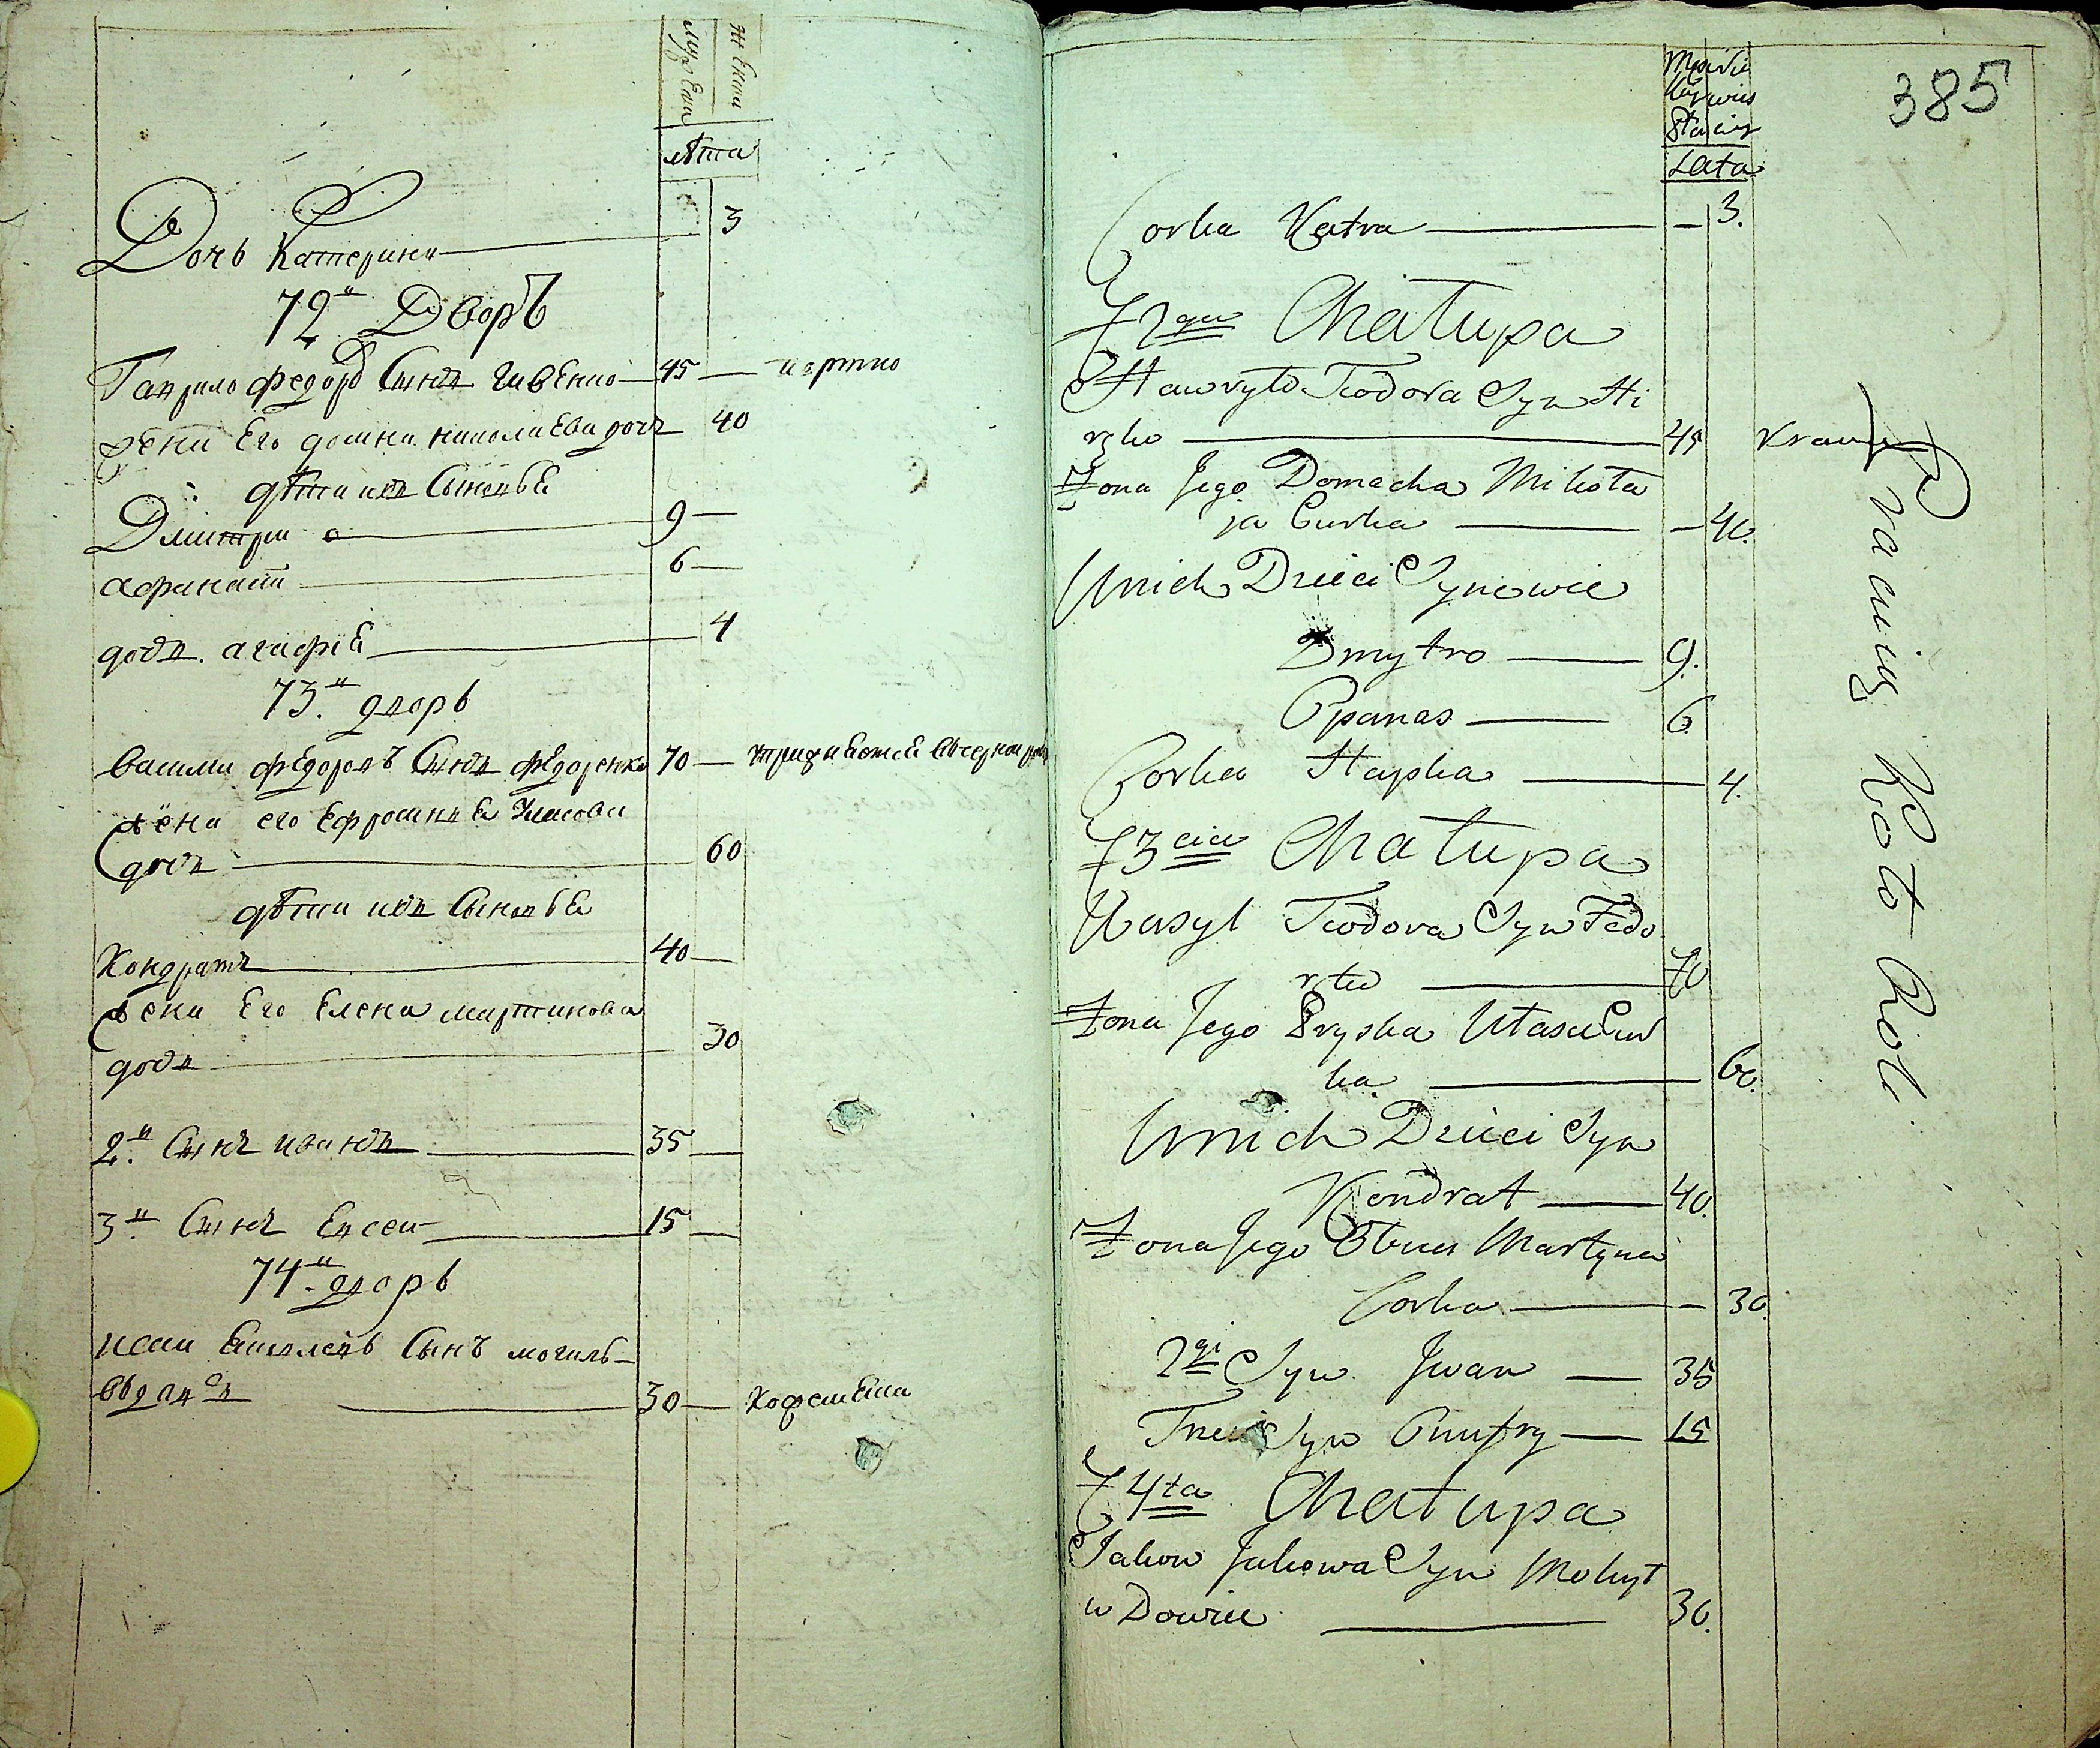 Мужеска
Женска
лѣта
Дочь Катерина 3
72й Дворъ
Гаврило федоровъ Сынъ 45
жена Его домна николаева дочь 40
дѣти ихъ Сыновья
Дмитри 9
афанаси 6
дочь агафія 4
73й дворъ
васили федоровъ Сынъ федоренко 70
жена его Ефросинья Уласова
дочь 60
дѣти ихъ Сыновья
Кондратъ 40
жена Его Елена мартинова
дочь 30
2й Сынъ иванъ 35
3й Сынъ 15
74й дворъ
Сынъ могиль
вдовецъ 30
385
Męskie
Lata
Corka Katra — 3.
72ga Chałupa
Hawryło Teodora Syn Hi
45
Żona Jego Domacha Mikoła
ja Curka — 40.
Unich Dzieci Synowie
Dmytro 9.
Opanas 6
Corka Hapka 4.
73cia Chałupa
Wasyl Teodora Syn Fedo
70
Żona Jego Pryska Ułasa Cur
ka 60.
Unich Dzieci Syn
Kondrat 40.
Żona Jego Ołena Martyna
Corka — 30.
2gi Syn Jwan 35
Trzeci Syn Onufry 15
74ta Chałupa
Jakow Jakowa Syn Mohył
wDowiec 30.
Kraw
Pracuią Koło Roli.